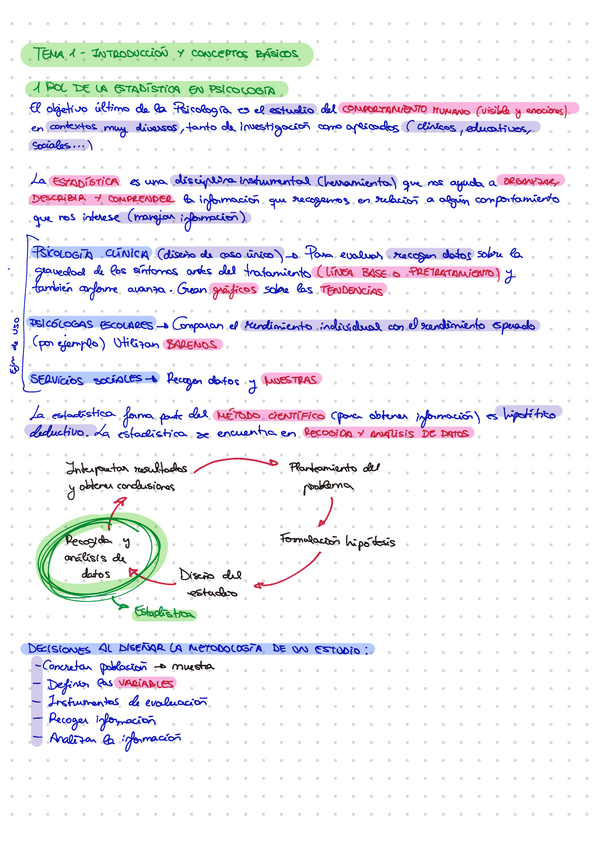 TEMA 1 - INTRODUCCIÓN Y CONCEPTOS BÁSICOS
1 ROL DE LA ESTADÍSTICA EN PSICOLOGÍA
El objetivo último de la Psicología es el estudio del COMPORTAMIENTO HUMANO (visible y emociones)
en contextos muy diversos, tanto de investigación como aplicados (clínicos, educativos,
sociales...)
La ESTADÍSTICA es una disciplina instrumental (herramienta) que nos ayuda a ORGANIZAR,
DESCRIBIR Y COMPRENDER la información que recogemos en relación a algún comportamiento
que nos interese (manejar información)
Ejm de uso
PSICOLOGÍA CLÍNICA (diseño de caso único) → Para evaluar recogen datos sobre la
gravedad de los síntomas antes del tratamiento (LÍNEA BASE O PRETRATAMIENTO) y
también conforme avanza. Crean gráficos sobre las TENDENCIAS
PSICÓLOGAS ESCOLARES → Comparan el rendimiento individual con el rendimiento esperado
(por ejemplo) Utilizan BAREMOS
SERVICIOS SOCIALES → Recogen datos y MUESTRAS
La estadística forma parte del MÉTODO CIENTÍFICO (para obtener información) es hipotético
deductivo. La estadística se encuentra en RECOGIDA Y ANÁLISIS DE DATOS
Interpretar resultados
y obtener conclusiones
Planteamiento del
problema
Formulación hipótesis
Diseño del
estudio
Recogida y
análisis de
datos
Estadística
DECISIONES AL DISEÑAR LA METODOLOGÍA DE UN ESTUDIO:
- Concretar población → muestra
- Definir las VARIABLES
- Instrumentos de evaluación
- Recoger información
- Analizar la información